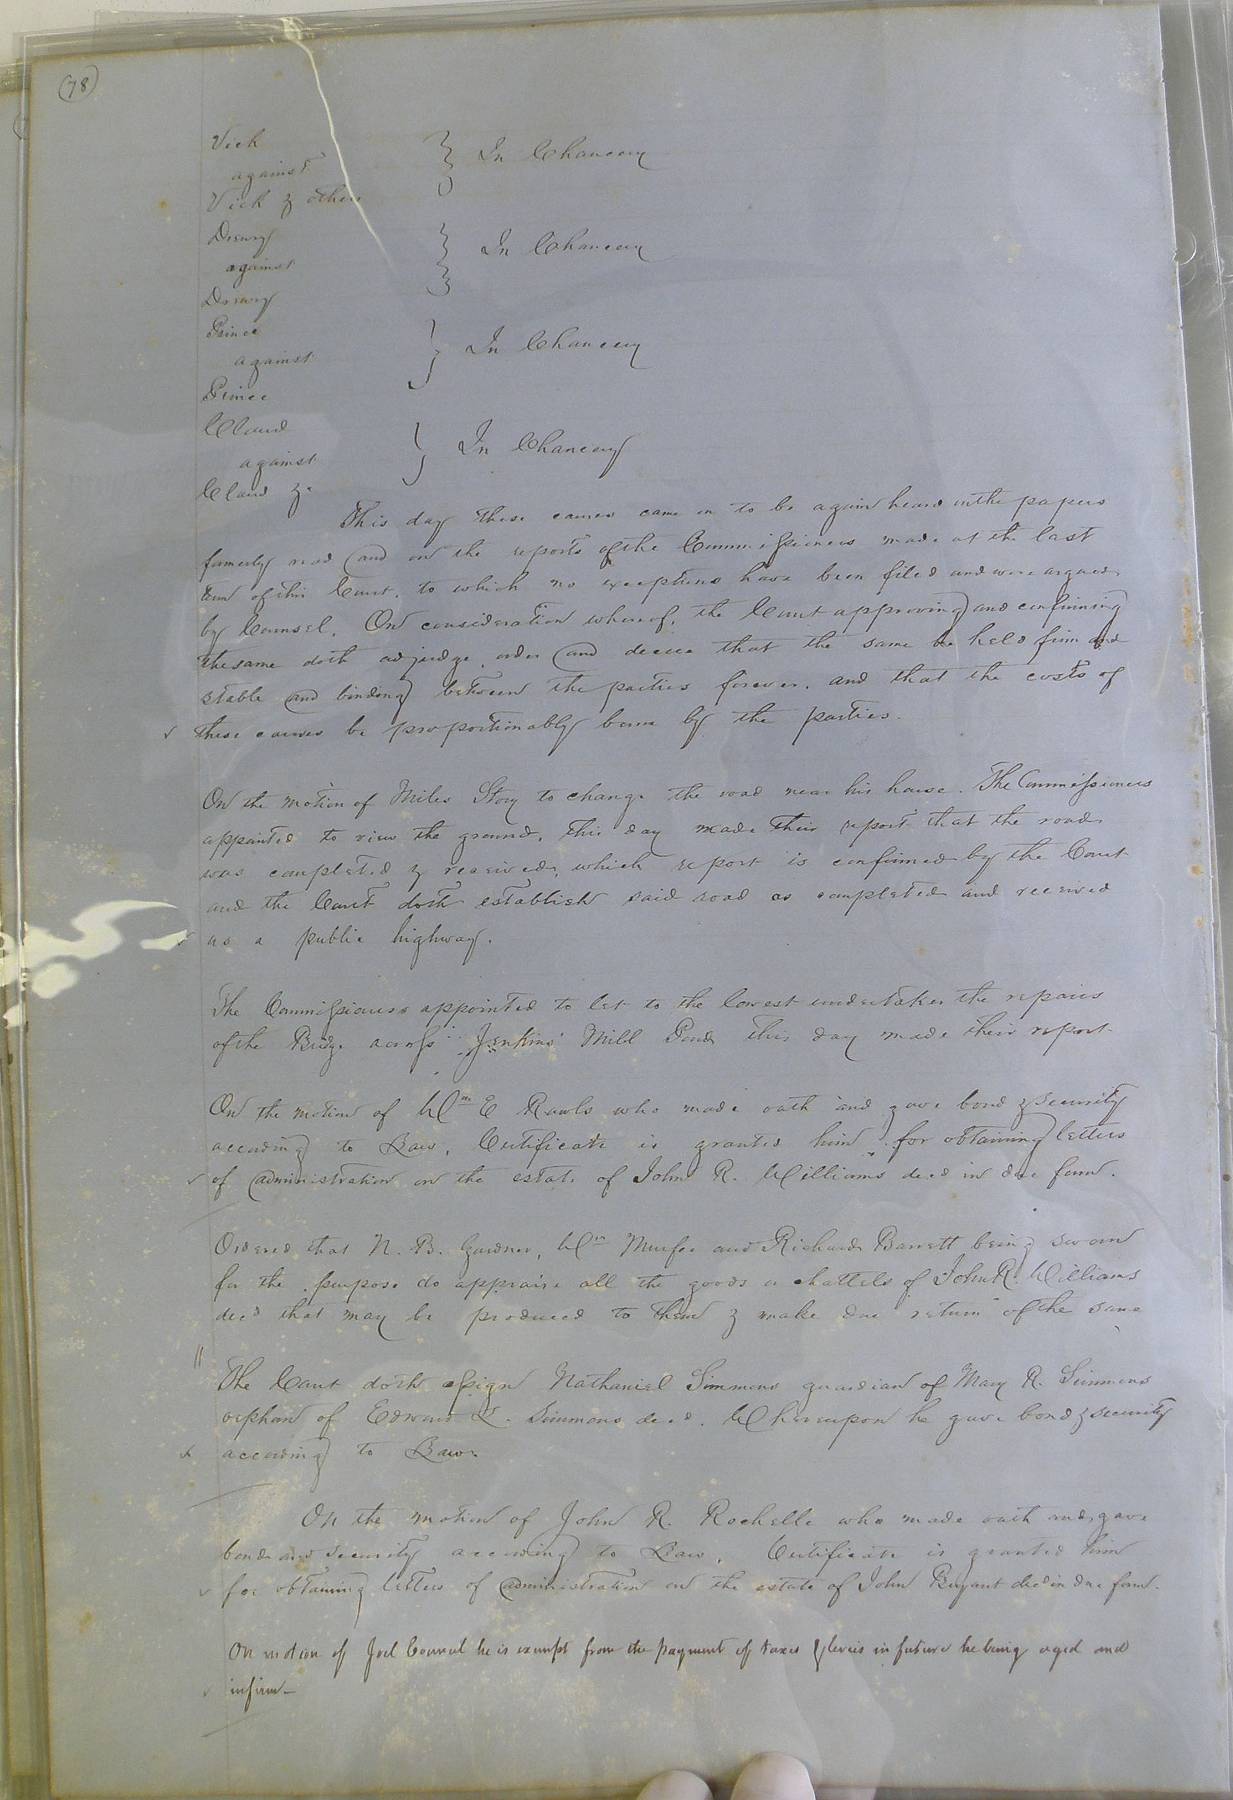 (78)
Vick
against } In Chancery
Vick & others
Drewry
against } In Chancery
Drewry
Prince
against } In Chancery
Prince
Claud
against } In Chancery
Claud &c
This day these causes came on to be again heard on the papers
formerly read and on the reports of the Commissioners made at the last
term of this Court, to which no exceptions have been filed and were argued
by Counsel. On consideration whereof, the Court approving and confirming
the same doth adjudge, order and decree that the same be held firm and
stable and binding between the parties forever. and that the costs of
these causes be proportionably borne by the parties.
On the motion of Miles Story to change the road near his house. The Commissioners
appointed to view the ground, this day made their report that the road
was completed & received, which report is confirmed by the Court
and the Court doth establish said road as completed and received
as a public highway.
The Commissioners appointed to let to the lowest undertaker the repairs
of the Bridge across Jenkins' Mill Pond this day made their report
On the motion of Wm E Rawls who made oath and gave bond & security
according to Law, Certificate is granted him for obtaining letters
of administration on the estate of John R. Williams decd in due form.
Ordered that N. B. Gardner, Wm Murfee and Richard Barrett being sworn
for the purpose do appraise all the goods or chattels of John R. Williams
decd that may be produced to them & make due return of the same
The Court doth assign Nathaniel Simmons guardian of Mary R. Simmons
orphan of Edward L. Simmons decd. Whereupon he gave bond & security
according to Law.
On the motion of John R. Rochelle who made oath and gave
bond and security according to Law, Certificate is granted him
for obtaining letters of administration on the estate of John Bryant decd in due form.
On motion of Joel Council he is exempt from the payment of taxes & levies in future he being aged and
infirm—